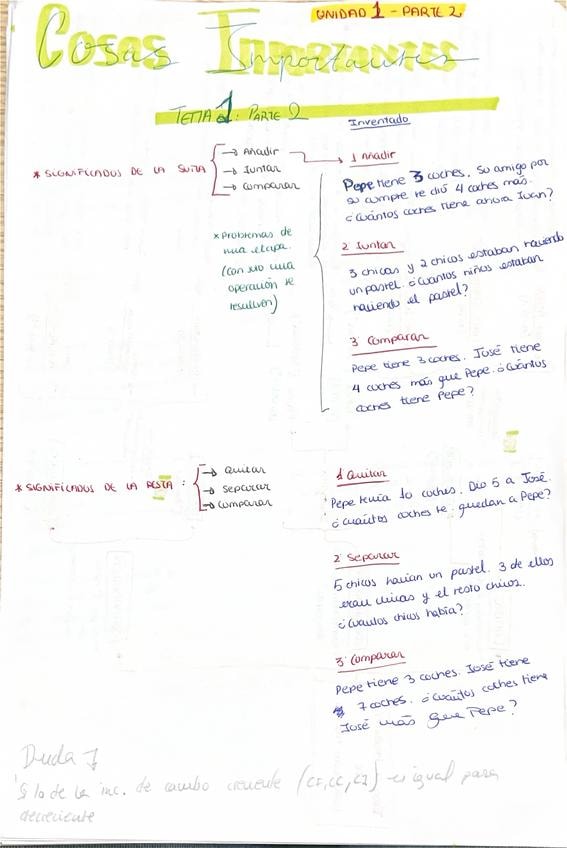 UNIDAD 1 - PARTE 2
COSAS IMPORTANTES
TEMA 1: PARTE 2
Inventado
* SIGNIFICADOS DE LA SUMA
→ Añadir
→ Juntar
→ Comparar
* Problemas de
una etapa.
(con solo una
operación se
resuelven)
1 Añadir
Pepe tiene 3 coches. Su amigo por
su cumple le dió 4 coches más.
¿Cuántos coches tiene ahora Juan?
2 Juntar
3 chicas y 2 chicos estaban haciendo
un pastel. ¿Cuantos niños estaban
haciendo el pastel?
3 Comparar
Pepe tiene 3 coches. José tiene
4 coches más que Pepe. ¿Cuántos
coches tiene Pepe?
* SIGNIFICADOS DE LA RESTA :
→ Quitar
→ Separar
→ Comparar
1 Quitar
Pepe tenía 10 coches. Dio 5 a José.
¿Cuántos coches le quedan a Pepe?
2 Separar
5 chicos hacían un pastel. 3 de ellos
eran chicas y el resto chicos.
¿Cuántos chicos había?
3 Comparar
Pepe tiene 3 coches. José tiene
7 coches. ¿Cuántos coches tiene
José más que Pepe?
Duda 1
Si lo de la inc. de cambio creciente (CF, CC, CI) es igual para
decreciente